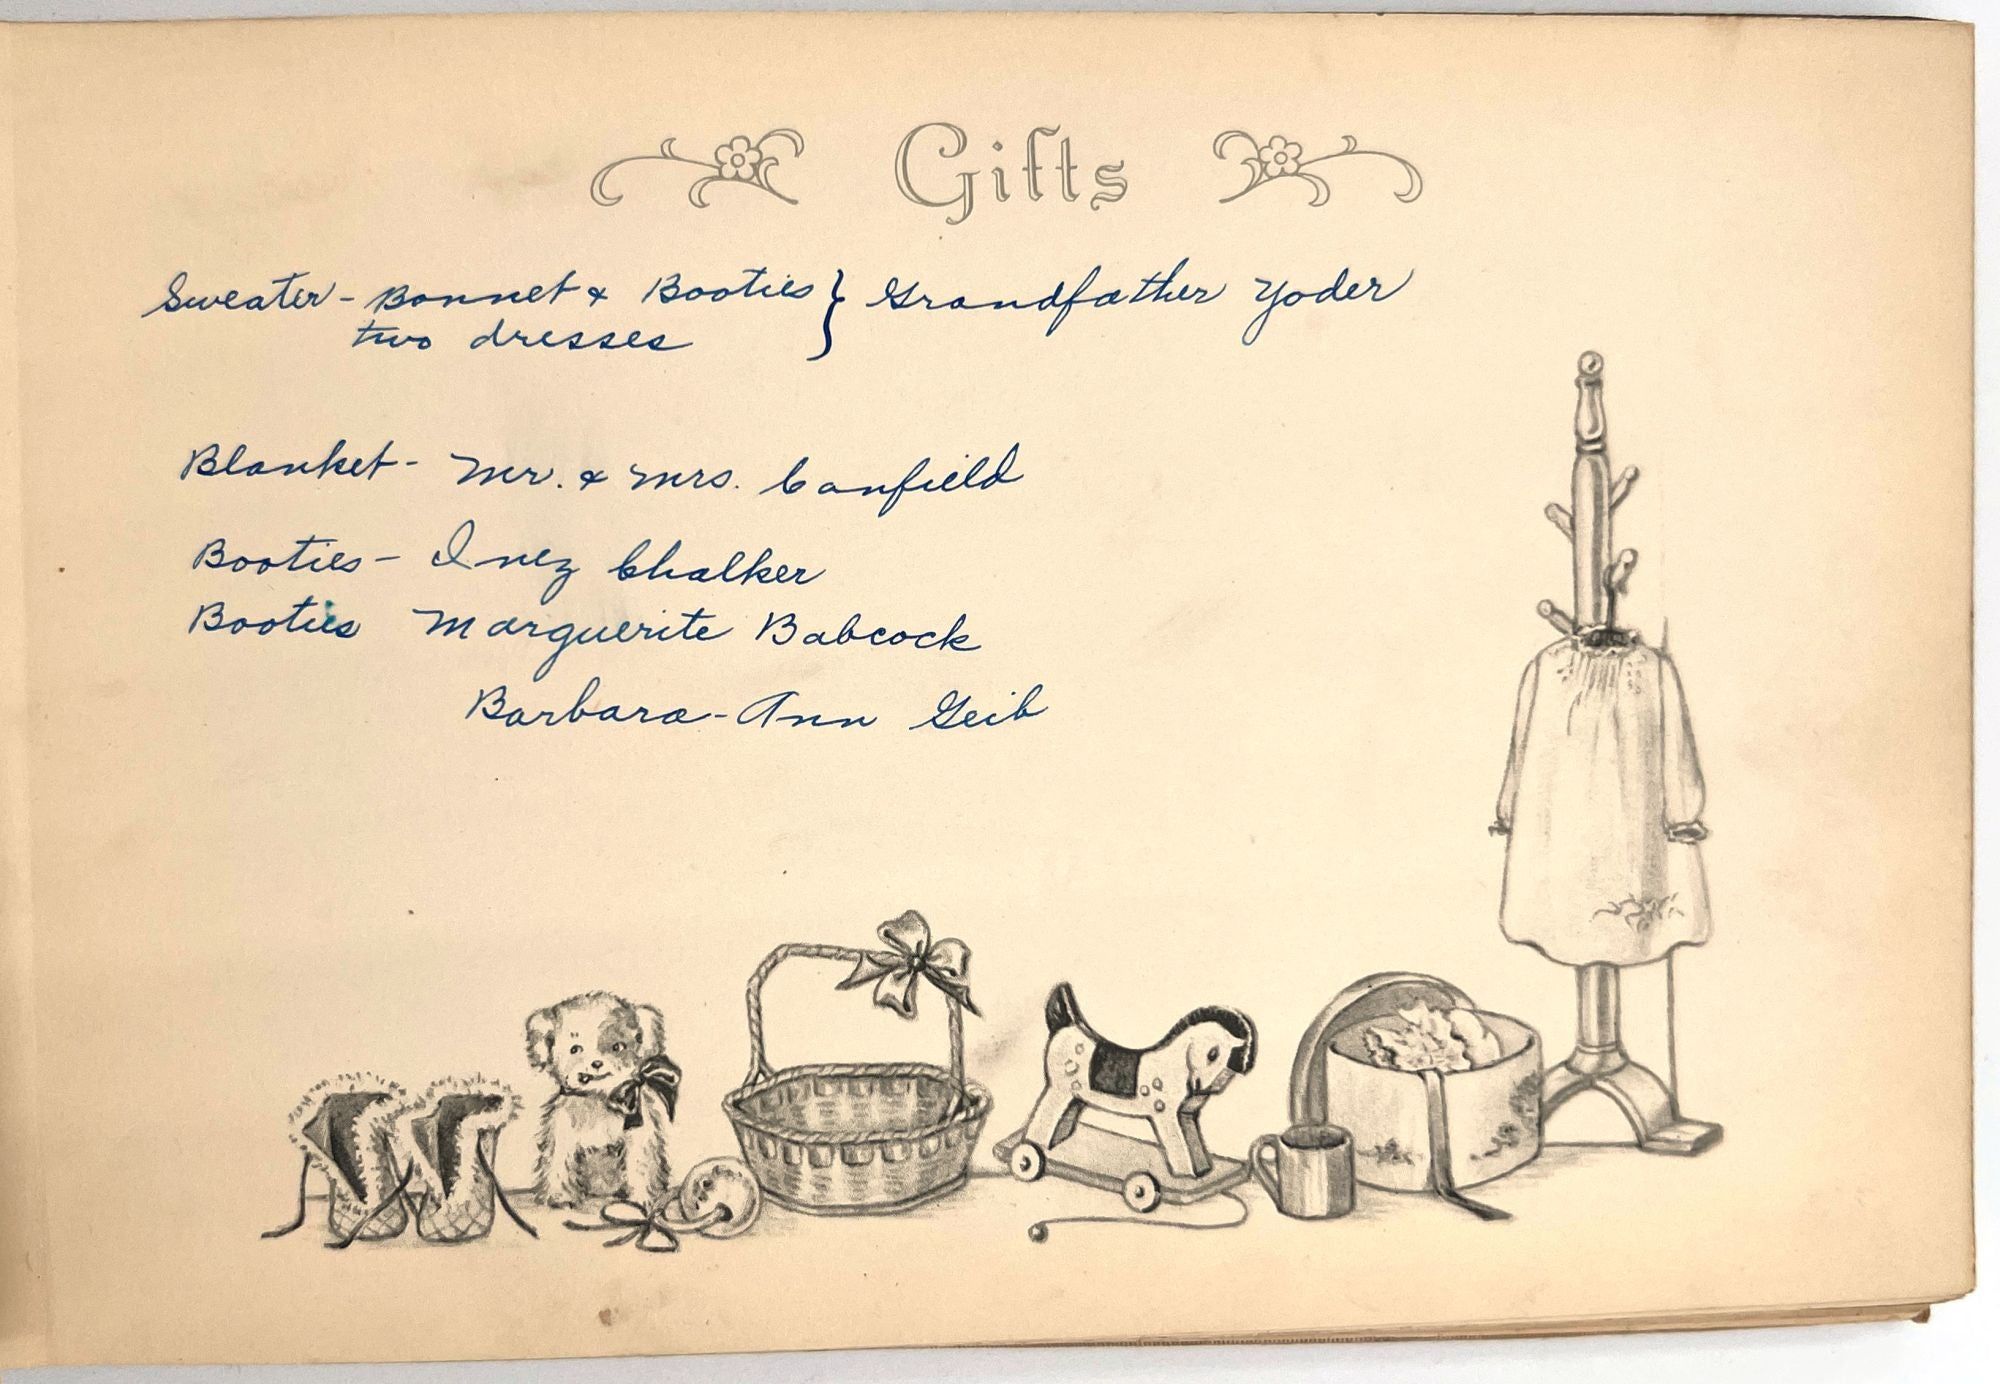 Gifts
Sweater - Bonnet & Booties } Grandfather Yoder
two dresses
Blanket - Mr. & Mrs. Canfield
Booties - Inez Chalker
Booties Marguerite Babcock
Barbara-Ann Geib